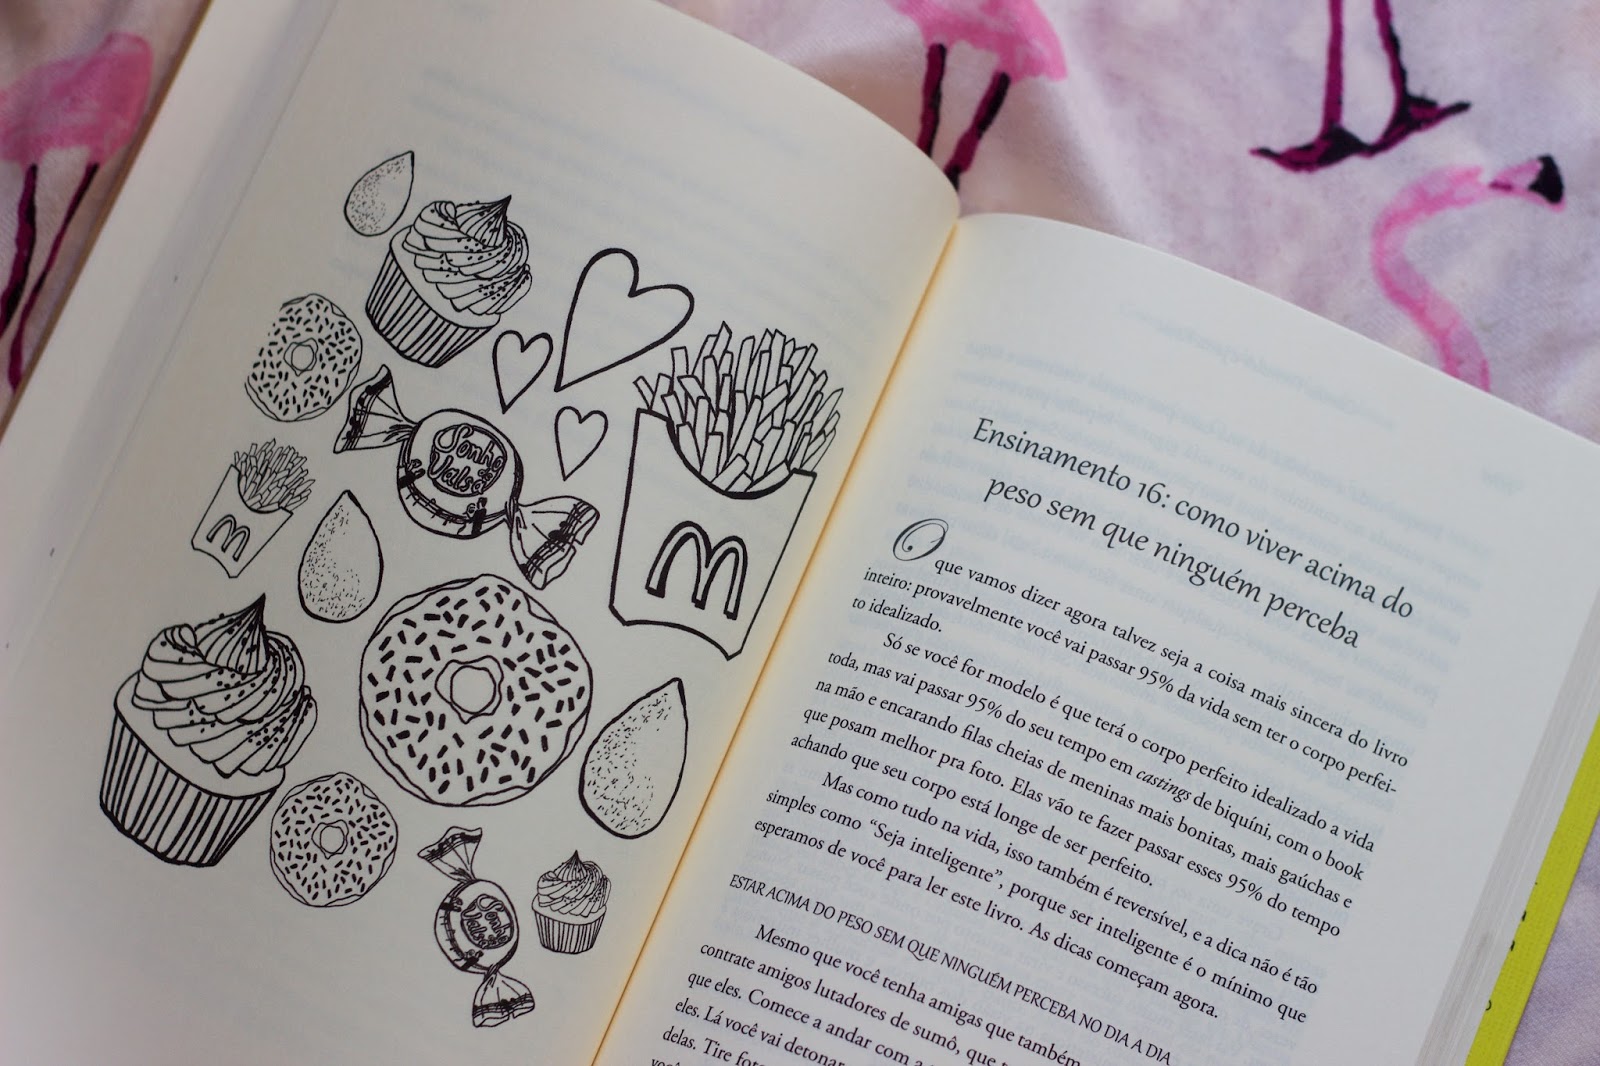 Sonho
de
Valsa
M
M
Sonho
de
Valsa
Ensinamento 16: como viver acima do
peso sem que ninguém perceba
O que vamos dizer agora talvez seja a coisa mais sincera do livro
inteiro: provavelmente você vai passar 95% da vida sem ter o corpo perfei-
to idealizado.
Só se você for modelo é que terá o corpo perfeito idealizado a vida
toda, mas vai passar 95% do seu tempo em castings de biquíni, com o book
na mão e encarando filas cheias de meninas mais bonitas, mais gaúchas e
que posam melhor pra foto. Elas vão te fazer passar esses 95% do tempo
achando que seu corpo está longe de ser perfeito.
Mas como tudo na vida, isso também é reversível, e a dica não é tão
simples como “Seja inteligente”, porque ser inteligente é o mínimo que
esperamos de você para ler este livro. As dicas começam agora.
ESTAR ACIMA DO PESO SEM QUE NINGUÉM PERCEBA NO DIA A DIA
Mesmo que você tenha amigas que também
contrate amigos lutadores de sumô, que
que eles. Comece a andar com a
eles. Lá você vai detonar
delas. Tire